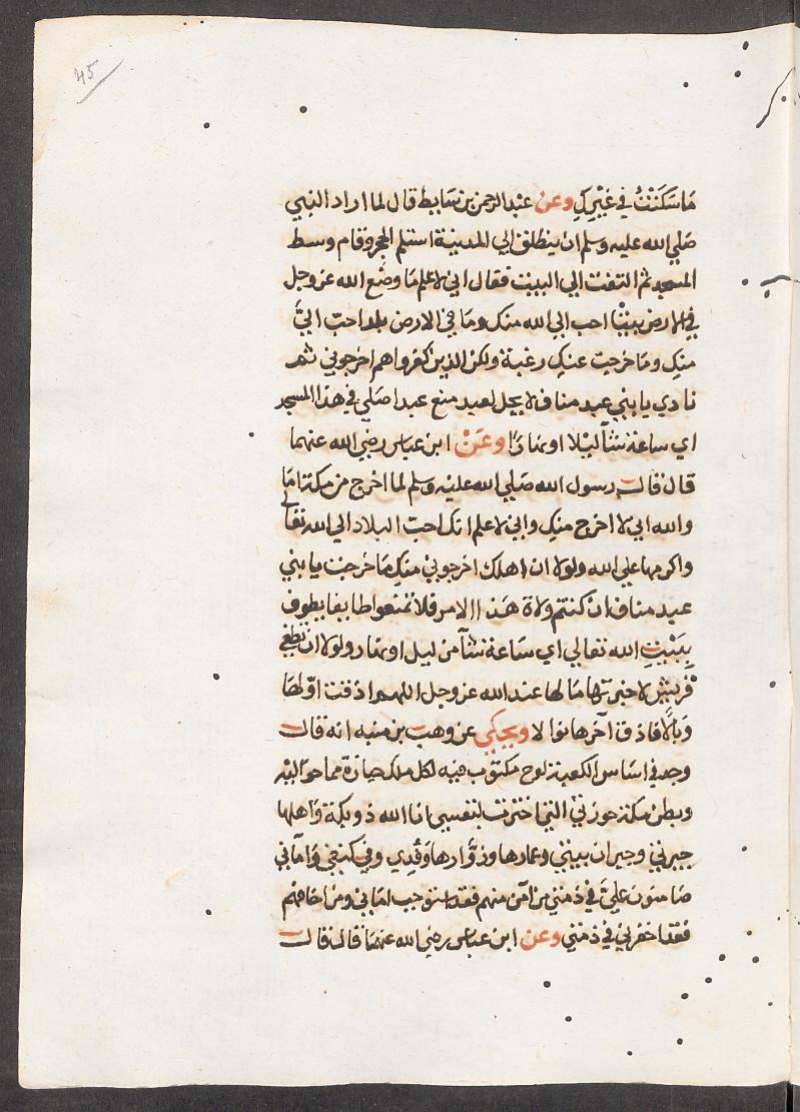 45
مَا سَكَنْتُ في غَيْرِكِ وعن عبْد الرحمن بن سَابِط قال لما اراد النبي
صَلي الله عليه وسلم ان ينطلق الي المدينة استلم الحجر وقام وسط
المسجد ثم التفت الي البيت فقال اني لاعلم مَا وضع الله عز وجل
في الارض بيتًا احب الي الله منك وما في الارض بلد احبّ اليَّ
منكِ وما خرجت عنكِ رغبة ولكن الذين كفروا هم اخرجوني ثم
نادي يا بني عبد مناف لا يحل لعبد منع عبدا صَلي في هذا المسجد
اي ساعة شآ ليْلا او نهارًا وعَنْ ابن عباس رضي الله عنهما
قال قال رسول الله صَلي الله عليه وسلم لما اخرج من مكة امَا
والله اني لاخرج منكِ واني لاعلم انك احبّ البلاد الي الله تعالي
واكرمها علي الله ولولا ان اهلك اخرجوني منكِ مَا خرجت يا بني
عبد مناف ان كنتم ولاة هَذا الامر فلا تمنعوا طايفا يطوف
بِبَيْتِ الله تعالي اي سَاعة شآ من ليل او نهار ولولا ان تطغي
قريش لاخبرتها مَا لها عند الله عز وجل اللهم اذقت اوّلهَا
وَبالًا فاذق آخرها نوالا ويحكي عن وهب بن منبه انه قال
وجد في اساس الكعبة لوح مكتوب فيه لكل ملك حيازة مما حواليْه
وبطن مكة حوزتي التي اخترت لنفسي انا الله ذو بكة وَاهلها
جيرتي وجيران بيتي وعمارها وزوّارها وَفْدي وفي كنفي وَامَاني
ضَامنون عليَّ في ذمتي من آمن منهم فقد استوجب اماني ومن اخافهم
فقد اخفرني في ذمتي وعن ابن عباس رضي الله عنهمَا قال قال